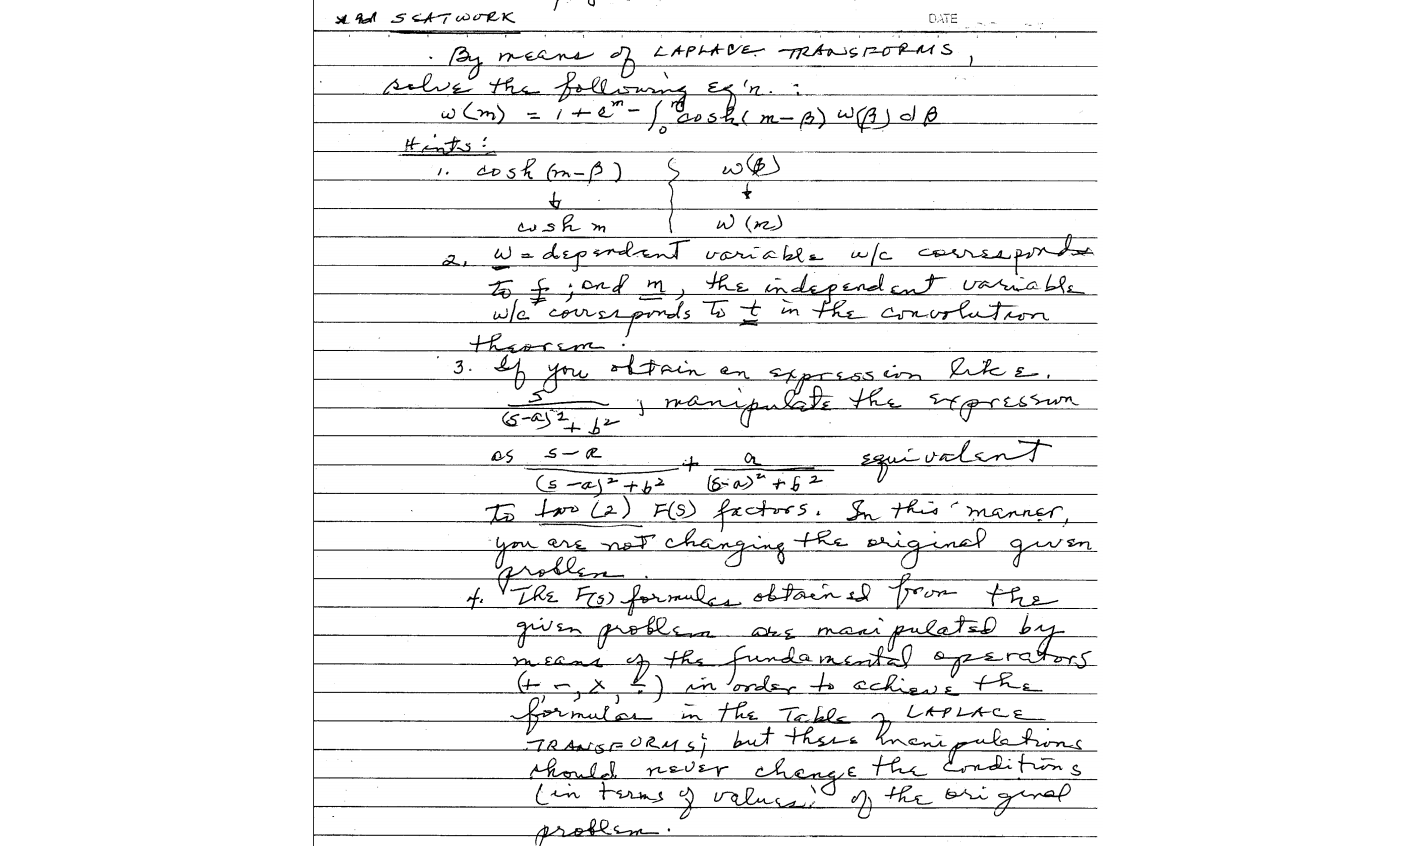 SEATWORK DATE
By means of LAPLACE TRANSFORMS,
solve the following eq'n. :
w(m) = 1 + e^m - ∫_0^m cosh(m-β) w(β) dβ
Hints:
1. cosh (m-β) w(β)
↓ ↓
cosh m w(m)
2. w = dependent variable w/c corresponds
to f ; and m, the independent variable
w/c corresponds to t in the convolution
theorem.
3. If you obtain an expression like.
s/((s-a)^2 + b^2) ; manipulate the expression
as (s-a)/((s-a)^2 + b^2) + a/((s-a)^2 + b^2) equivalent
to two (2) F(s) factors. In this manner,
you are not changing the original given
problem.
4. The F(s) formulas obtained from the
given problem are manipulated by
means of the fundamental operators
(+, -, x, ÷) in order to achieve the
formulas in the Table of LAPLACE
TRANSFORMS; but these manipulations
should never change the conditions
(in terms of values) of the original
problem.